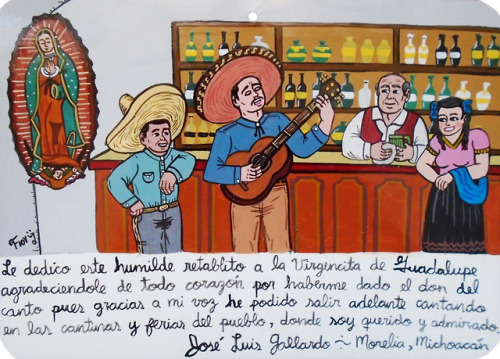 Fiory
Le dedico este humilde retablito a la Virgencita de Guadalupe
agradeciendole de todo corazon por haberme dado el don del
canto pues gracias a mi voz he podido salir adelante cantando
en las cantinas y ferias del pueblo, donde soy querido y admirado
José Luis Gallardo ~ Morelia, Michoacán